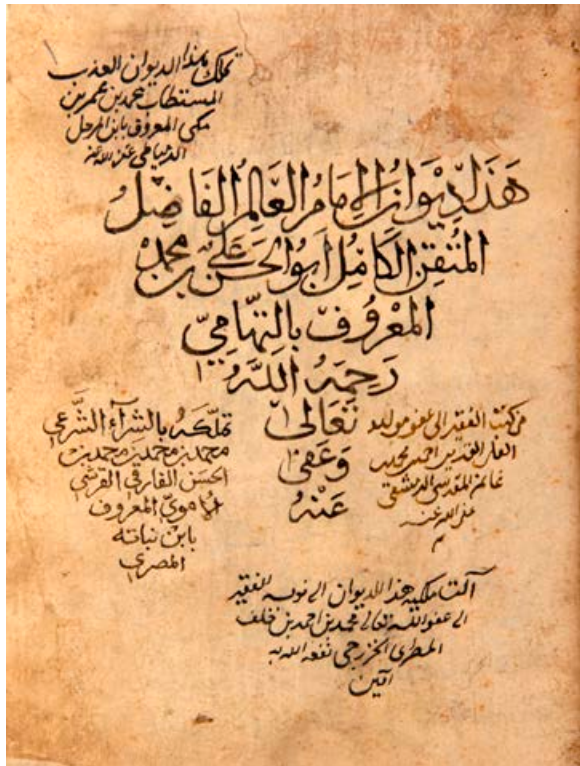 تملك بهذا الديوان العذب
المستطاب محمد بن عمر بن
مكي المعروف بابن المرحل
الدمياطي عفى الله عنه
هَذَا دِيْوَانُ الإِمَامُ العَالِمُ الفَاضِلُ
المُتْقِن الكَامِل أبو الحسن علي بن محمد
المعْرُوف بالتهامِيّ
رَحِمَهُ اللَّهُ
تَعَالى
وَعَفى
عَنْهُ
تملّكه بالشرآء الشّرعي
محمد بن محمد بن محمد بن
الحسن الفارقي القرشي
الأموي المعروف
بابن نباته
المصري
من كتب الفقير الى عفو مولاه
احمد بن محمد بن
غانم المقدسي الدمشقي
عفى الله عنه
آلت ملكية هذا الديوان الى نوبه الفقير
الى عفو الله تعالى محمد بن احمد بن خلف
المطرى الخزرجي نفعه الله به
آمين